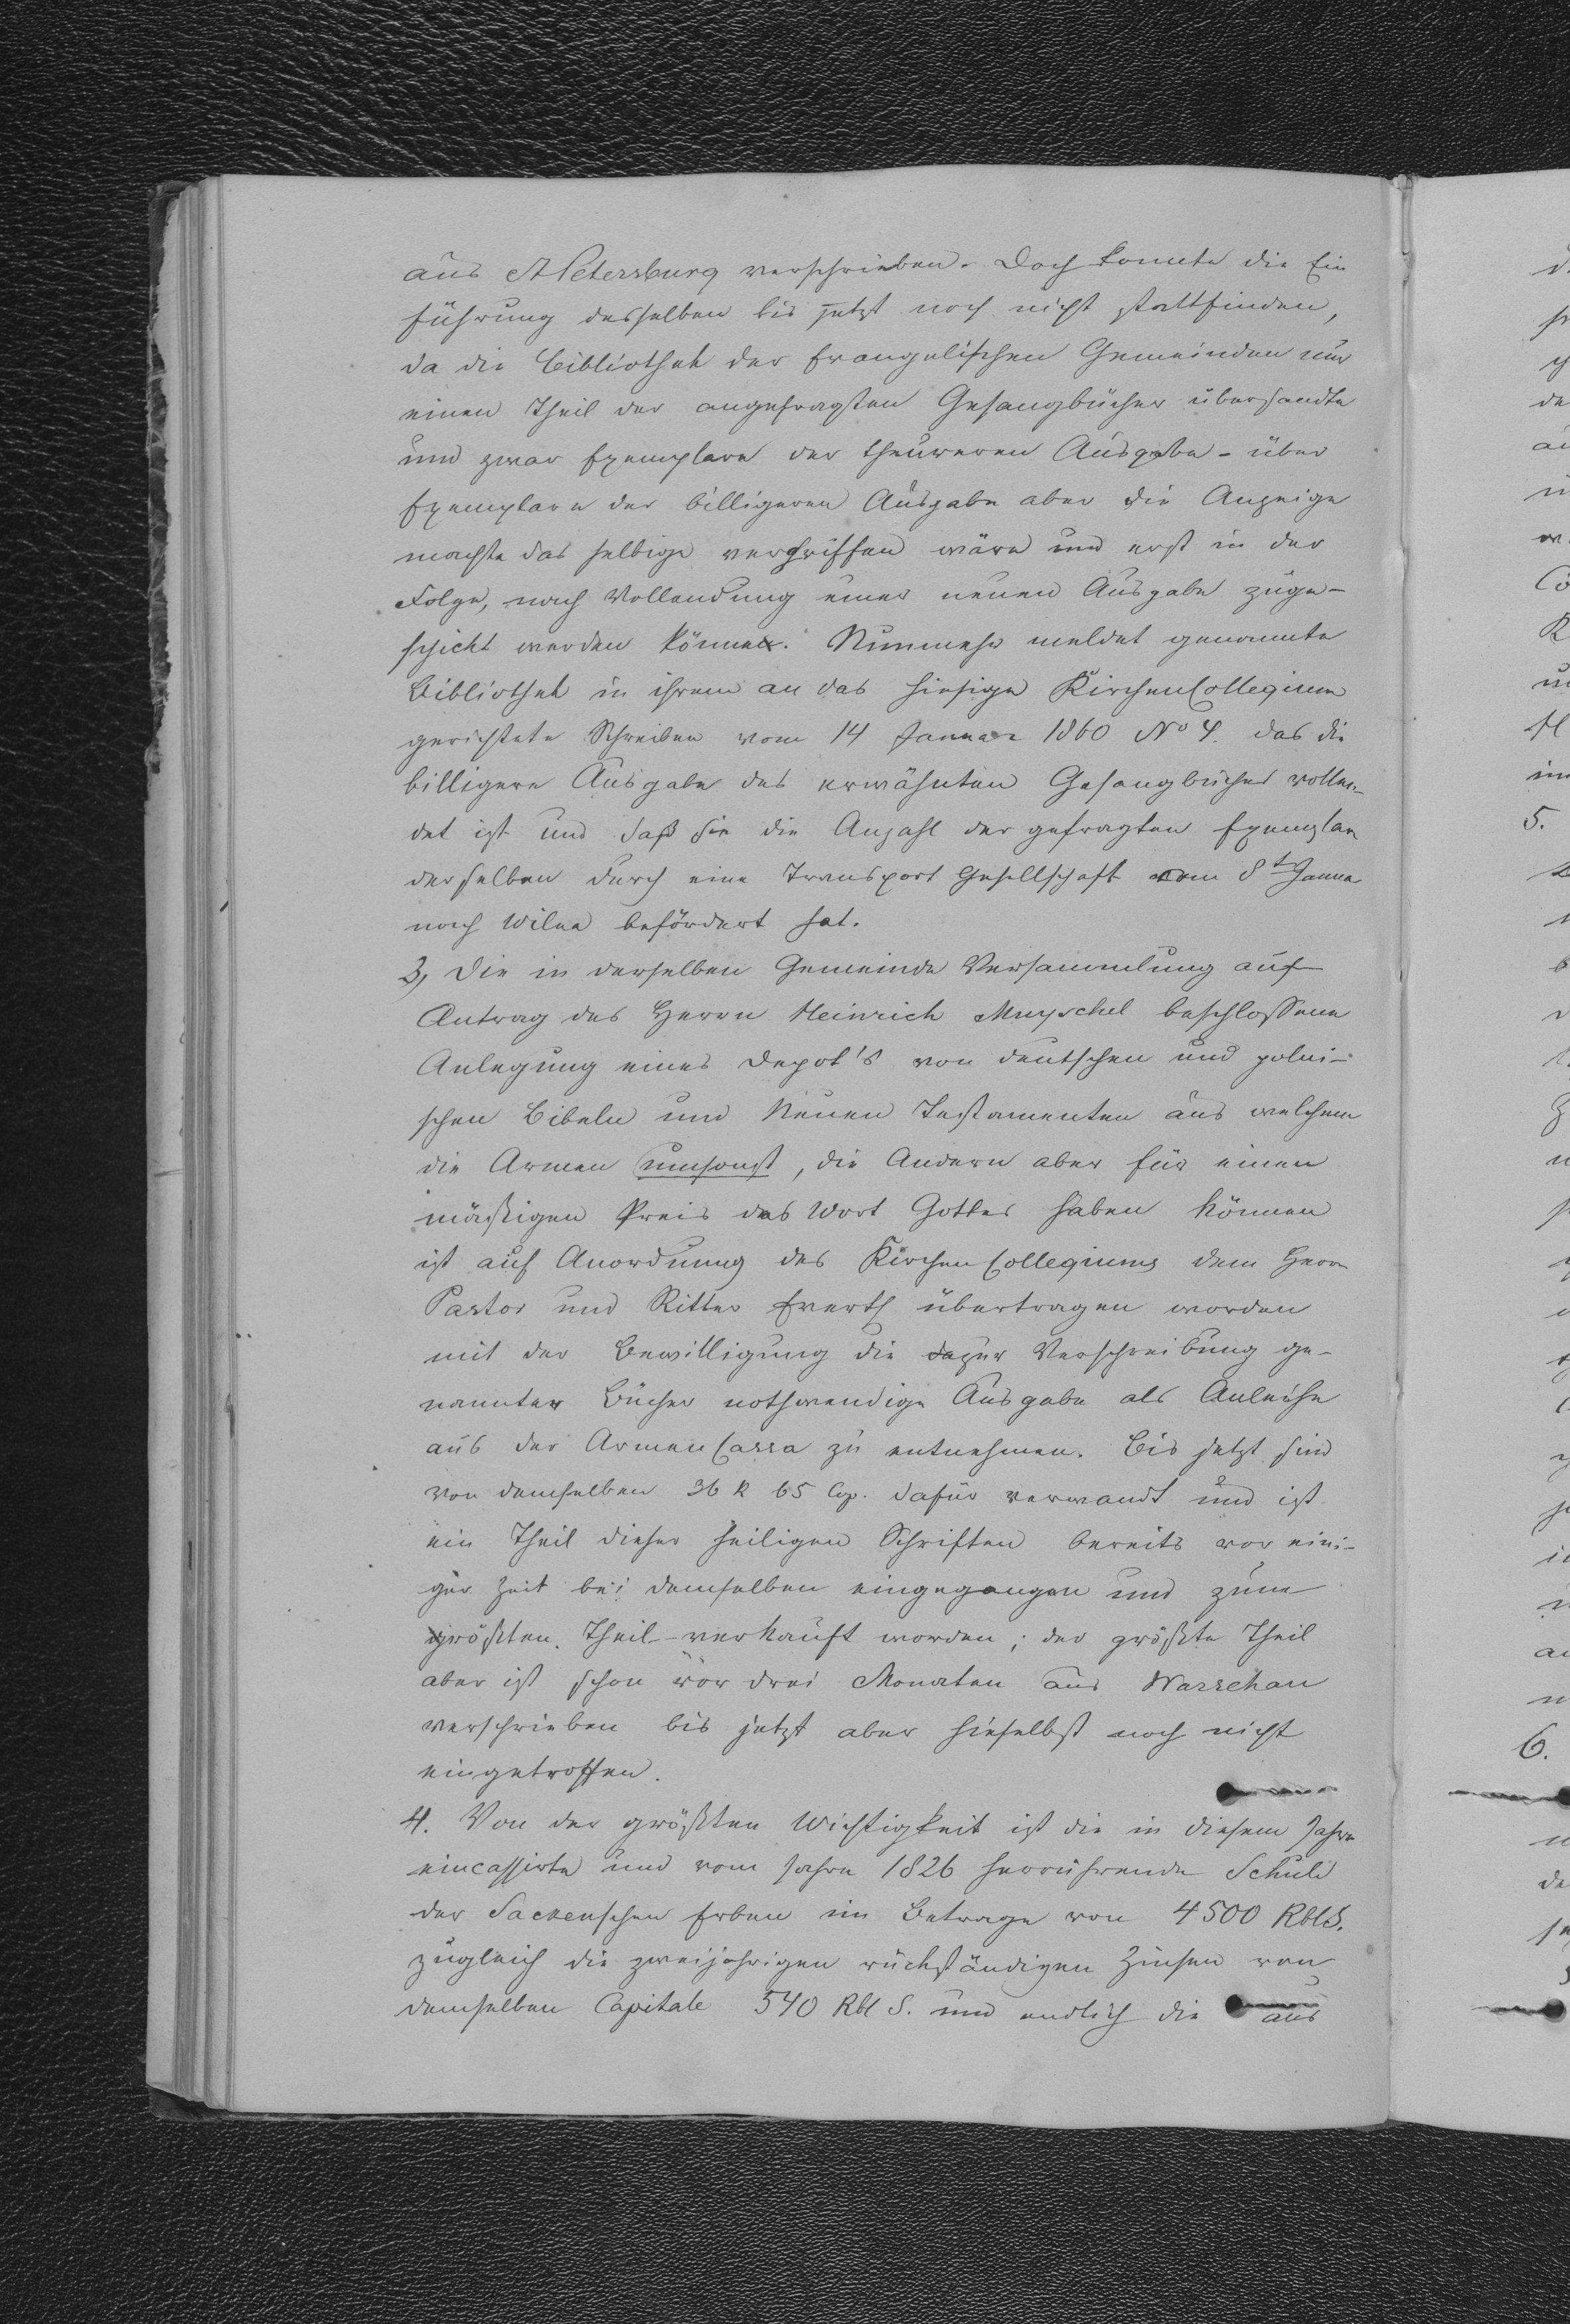 aus St Petersburg verschrieben. Doch konnte die Ein
führung desselben bis jetzt noch nicht stattfinden,
da die Bibliothek der Evangelischen Gemeinden nur
einen Theil der angefragten Gesangbücher übersandte
und zwar Exemplare der theureren Ausgabe - über
Exemplare der billigeren Ausgabe aber die Anzeige
machte das selbige vergriffen wäre und erst in der
Folge, nach Vollendung einer neuen Ausgabe zuge-
schickt werden könne. Nunmehr meldet genannte
Bibliothek in ihrem an das hiesige KirchenCollegium
gerichtete Schreiben vom 14 Januar 1860 No 4. das die
billigere Ausgabe des erwähnten Gesangbuches vollen-
det ist und daß sie die Anzahl der gefragten Exemplare
derselben durch eine Transport Gesellschaft vom 8t Janua
nach Wilna befördert hat.
3, Die in derselben Gemeinde Versammlung auf
Antrag des Herrn Heinrich Muyschel beschlossene
Anlegung eines Depot's von deutschen und polni-
schen Bibeln und Neuen Testamenten aus welchem
die Armen umsonst, die Andern aber für einen
mäßigen Preis das Wort Gottes haben können
ist auf Anordnung des Kirchen Collegiums dem Herrn
Pastor und Ritter Everth übertragen worden
mit der Bewilligung die zur Verschreibung ge-
nannter Bücher nothwendige Ausgabe als Anleihe
aus der Armen Cassa zu entnehmen. Bis jetzt sind
von demselben 36 R 65 Cop. dafür verwandt und ist
ein Theil dieser heiligen Schriften bereits vor eini-
ger Zeit bei demselben eingegangen und zum
größten Theil verkauft worden; der größte Theil
aber ist schon vor drei Monaten aus Warschau
verschrieben bis jetzt aber hieselbst noch nicht
eingetroffen.
4. Von der größten Wichtigkeit ist die in diesem Jahre
eincassirte und vom Jahre 1826 herrührende Schuld
der Sackenschen Erben im Betrage von 4500 Rbl S.
zugleich die zweijährigen rückständigen Zinsen von
demselben Capitale 540 Rbl S. und endlich die aus
5.
6.